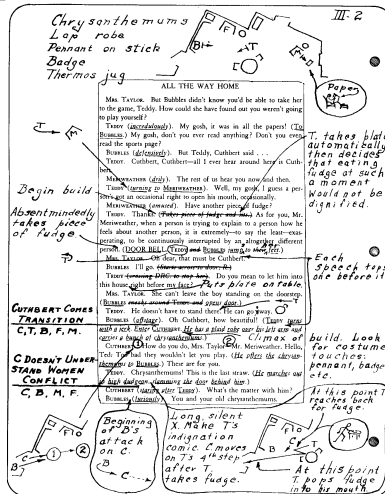 III-2
Chrysanthemums
Lap robe
Pennant on stick
Badge
Thermos jug
Paper
ALL THE WAY HOME
MRS. TAYLOR. But Bubbles didn't know you'd be able to take her
to the game, Teddy. How could she have found out you weren't going
to play yourself?
TEDDY (incredulously). My gosh, it was in all the papers! (To
BUBBLES.) My gosh, don't you ever read anything? Don't you even
read the sports page?
BUBBLES (defensively). But Teddy, Cuthbert said . . .
TEDDY. Cuthbert, Cuthbert—all I ever hear around here is Cuth-
bert.
MERIWEATHER (drily). The rest of us hear you now and then.
TEDDY (turning to MERIWEATHER). Well, my gosh, I guess a per-
son's got an occasional right to open his mouth, occasionally.
MERIWEATHER (amused). Have another piece of fudge?
TEDDY. Thanks. (Takes piece of fudge and sits.) As for you, Mr.
Meriweather, when a person is trying to explain to a person how he
feels about another person, it is extremely—to say the least—exas-
perating, to be continually interrupted by an altogether different
person. (DOOR BELL. (TEDDY and BUBBLES jump to their feet.)
MRS. TAYLOR. Oh dear, that must be Cuthbert.
BUBBLES. I'll go.
TEDDY you mean to let him into
this house right before my face? Puts plate on table.
MRS. TAYLOR. She can't leave the boy standing on the doorstep.
TEDDY. He doesn't have to stand there. He can go away.
BUBBLES (offstage). Oh Cuthbert, how beautiful! (TEDDY turns
with a jerk. Enter CUTHBERT. He has a plaid robe over his left arm and
carries a bunch of chrysanthemums.)
CUTHBERT. How do you do, Mrs. Taylor. Meriweather. Hello,
Ted. Too bad they wouldn't let you play. (He offers the chrysan-
themums to BUBBLES.) These are for you.
TEDDY. Chrysanthemums! This is the last straw. (He marches out
in high dudgeon, slamming the door behind him.)
CUTHBERT (staring after TEDDY). What's the matter with him?
BUBBLES (furiously). You and your old chrysanthemums.
T. takes plate
automatically
then decides
that eating
fudge at such
a moment
would not be
dignified.
Begin build
Absentmindedly
takes piece
of fudge.
Each
speech tops
one before it
CUTHBERT COMES
TRANSITION
C, T, B, F, M.
C DOESN'T UNDER-
STAND WOMEN
CONFLICT
C, B, M, F.
Climax of
build. Look
for costume
touches:
pennant, badge
etc.
At this point T
reaches back
for fudge.
Beginning
of B's
attack
on C.
Long, silent
X. Make T's
indignation
comic. C moves
on T's 4th step
after T.
takes fudge.
At this point
T. pops fudge
into his mouth.